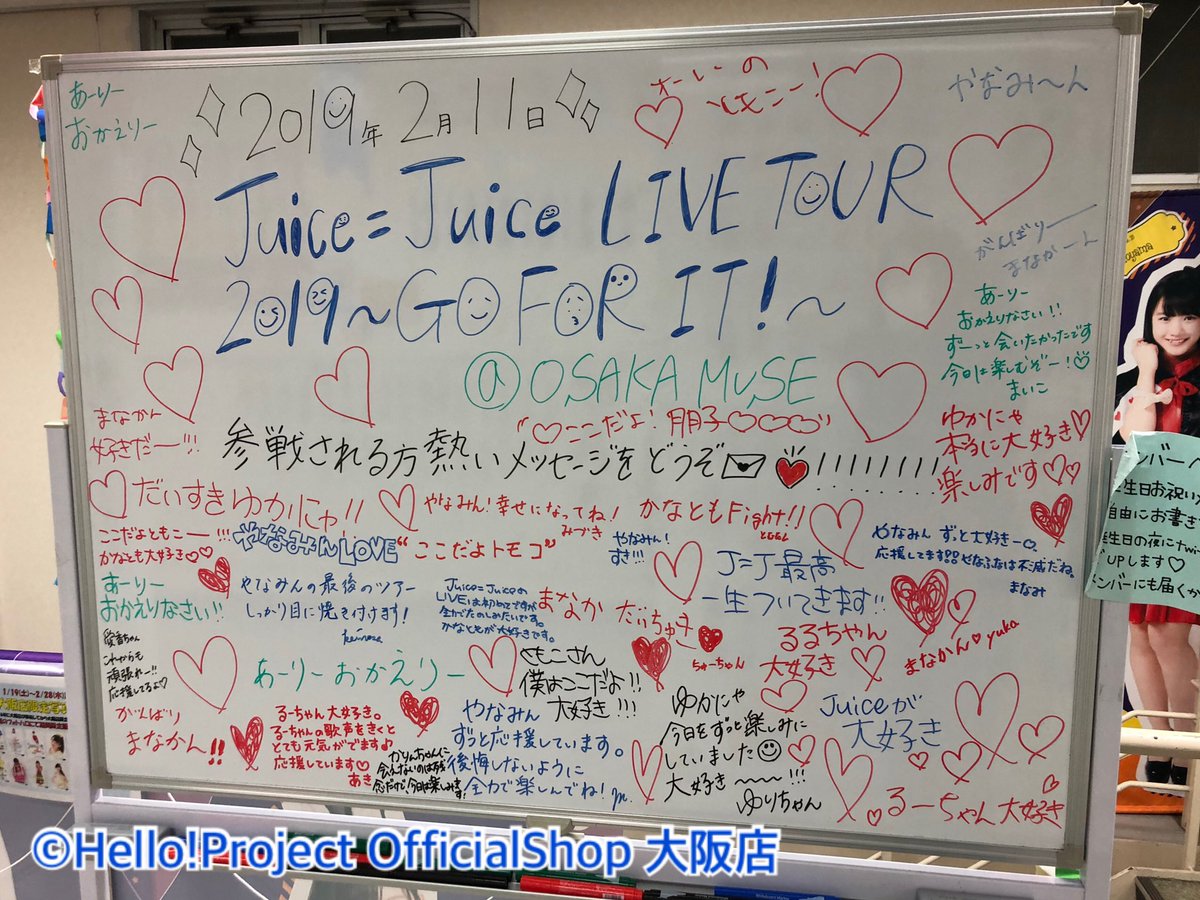 あーりー
おかえりー
2019年 2月11日
やなみ〜ん
Juice=Juice LIVE TOUR
2019〜GO FOR IT!〜
@OSAKA MUSE
がんばりー
まなかーん
あーりー
おかえりなさい!!
ずーっと会いたかったです
今日は楽しむぞー!
まいこ
まなかん
好きだー!!!
"♡ここだよ!朋子♡♡♡♡"
参戦される方熱いメッセージをどうぞ✉❤!!!!!!!!!
ゆかにゃ
本当に大好き♡
楽しみです♡♡
だいすきゆかにゃ!!
やなみん!幸せになってね!
みづき
かなともFight!!
ここだよともこー!!!
かなとも大好き♡♡
やなみんLOVE
"ここだよトモコ"
やなみん!
すき!!!
J=J最高
一生ついてきます!!
やなみん ずっと大好きー♡
応援してます!!やなふなは不滅だね。
まなみ
あーりー
おかえりなさい!!
やなみんの最後のツアー
しっかり目に焼き付けます!
Juice=Juiceの
LIVEは初めてですが
全力でたのしみたいです。
かなともが大好きです。
まなか だいちゅき
ちゅーちゃん
るるちゃん
大好き
まなかん♡yuka
これからも
頑張れー!!
応援してるよ♡
あーりーおかえりー
もこさん
僕はここだよ!!
大好き!!!
がんばり
まなかん!!
るーちゃん大好き。
るーちゃんの歌声をきくと
とても元気がでます♪
応援しています♡
あき
やなみん
ずっと応援しています。
後悔しないように
全力で楽しんでね!
ゆかにゃ
今日をずっと楽しみに
していました
大好き〜〜!!!
ゆりちゃん
Juiceが
大好き
るーちゃん大好き
1/19(土)〜2/28(木)
©Hello!Project OfficialShop 大阪店